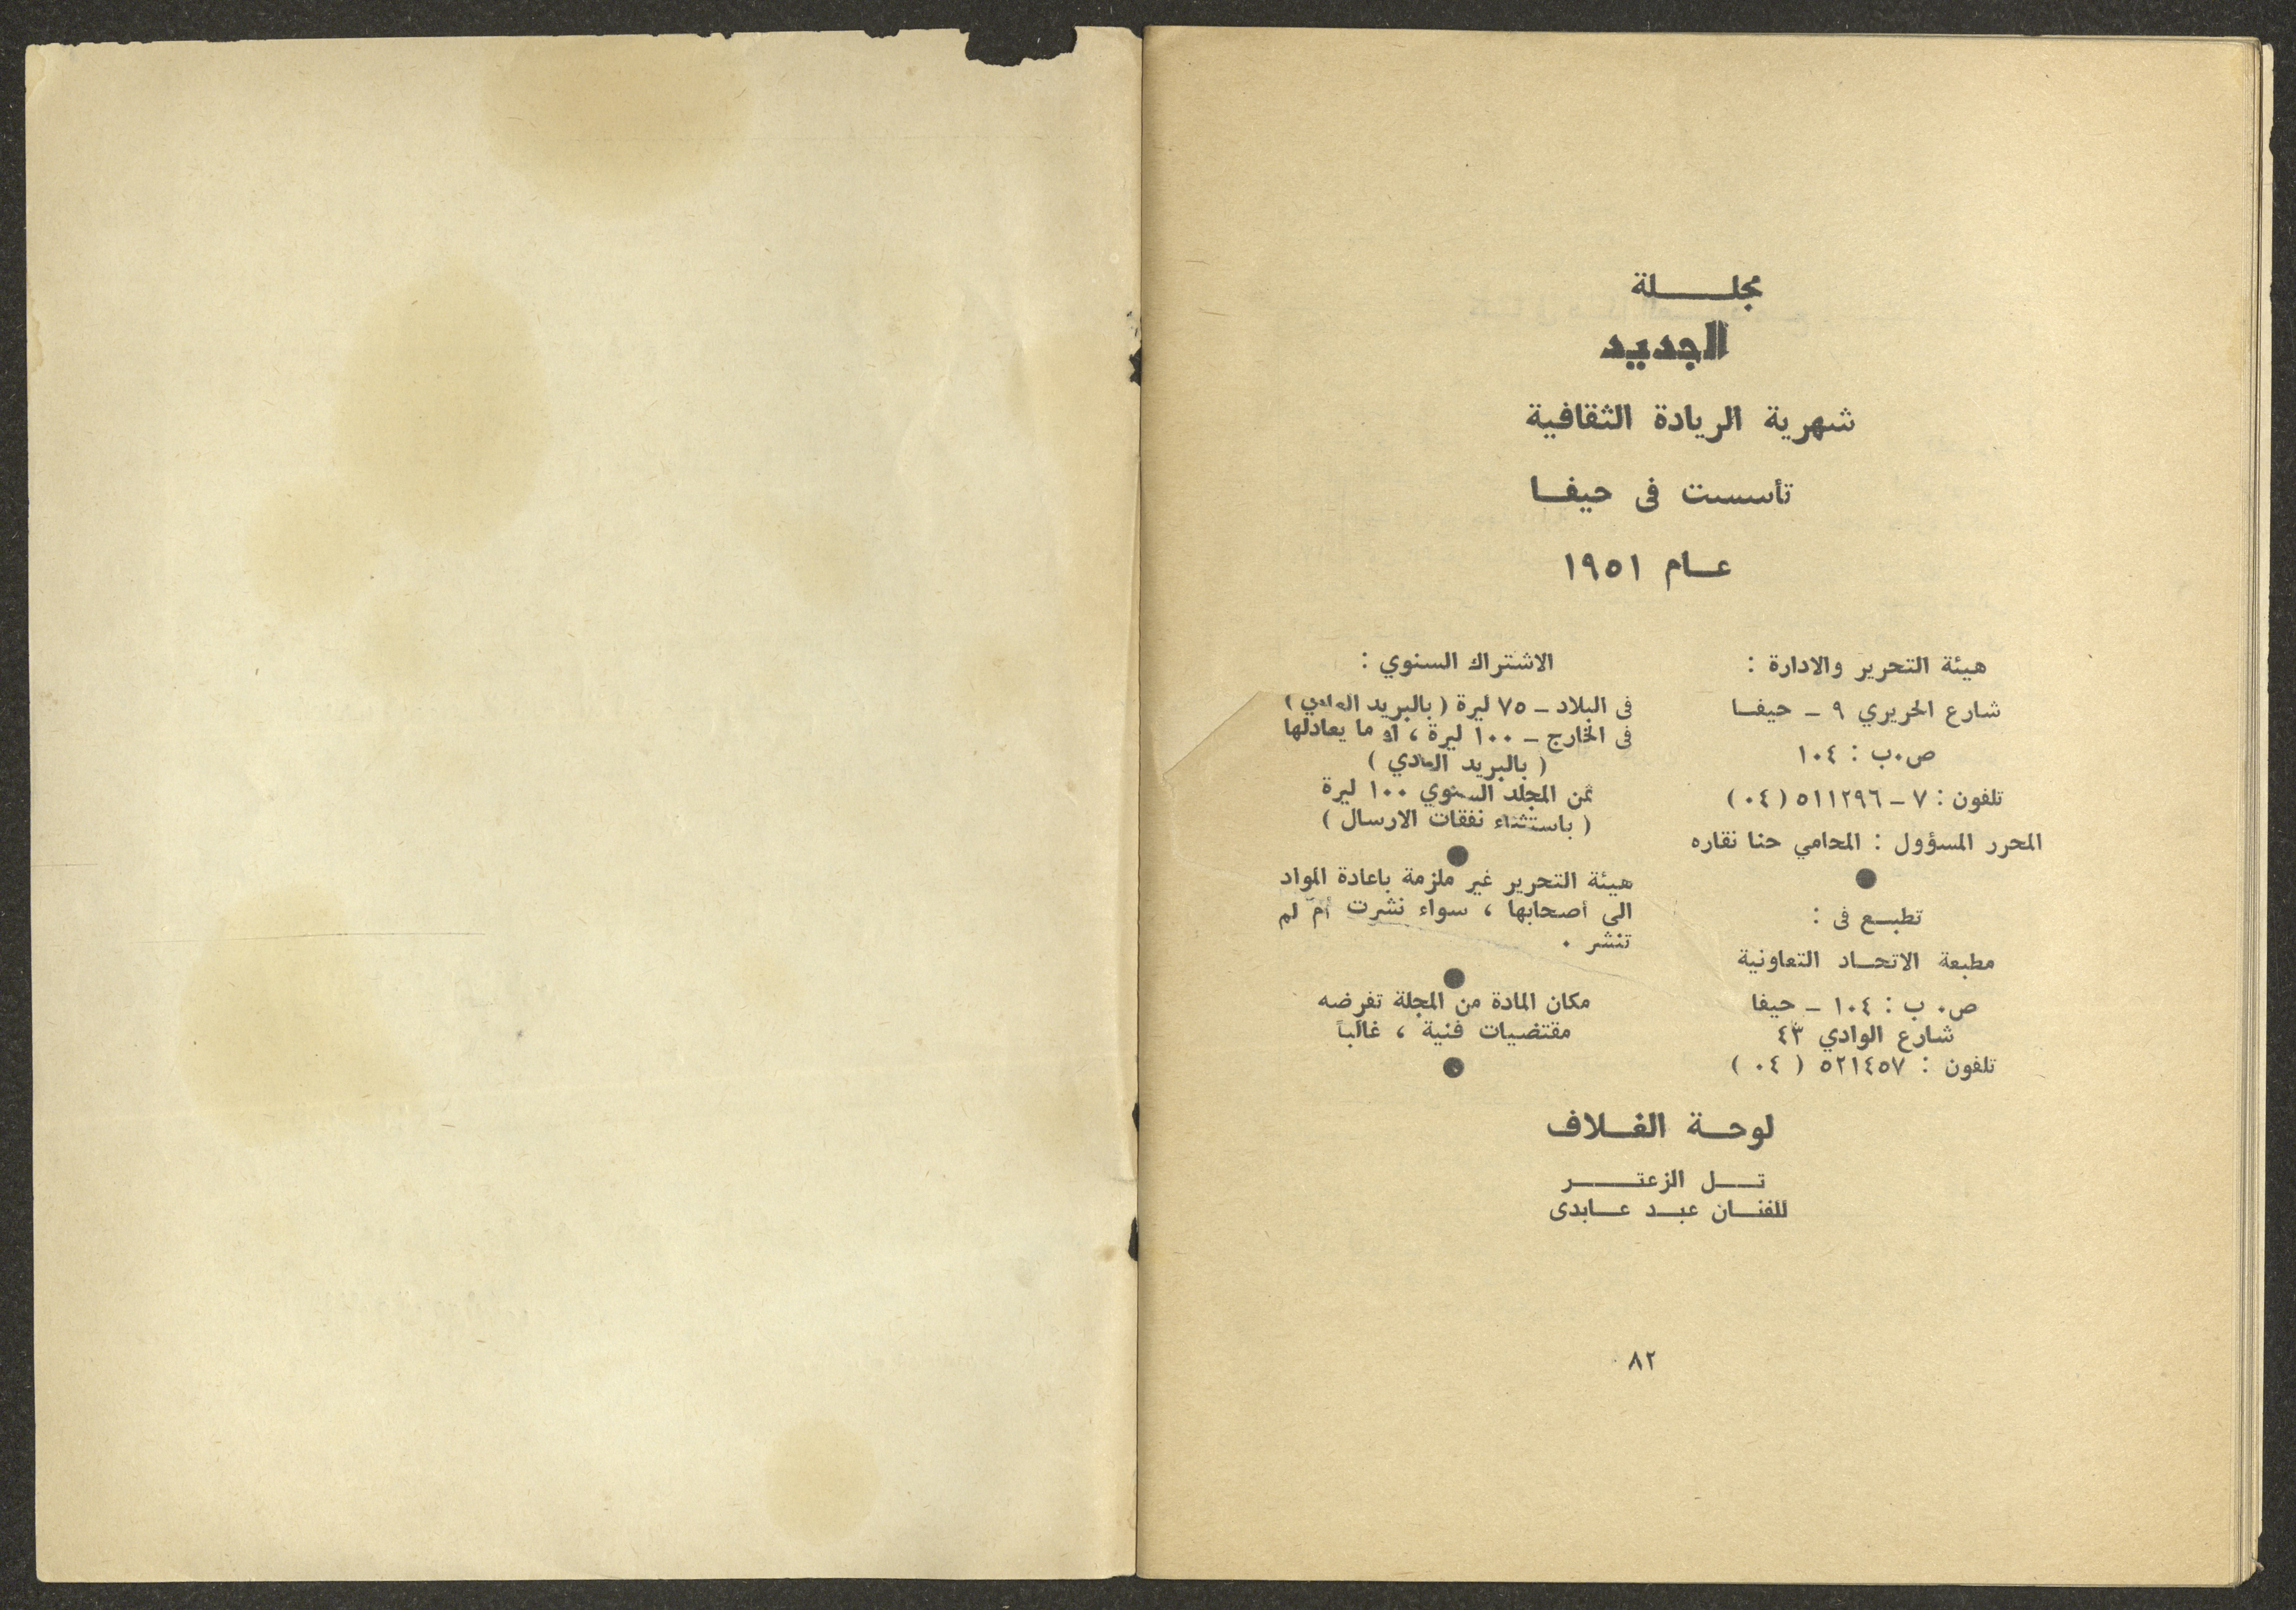 مجلة
الجديد
شهرية الريادة الثقافية
تأسست في حيفا
عام ١٩٥١
هيئة التحرير والادارة :
شارع الحريري ٩ ـ حيفا
ص.ب : ١٠٤
تلفون : ٧ ـ ٥١١٢٩٦ ( ٠٤ )
المحرر المسؤول : المحامي حنا نقاره
●
تطبع في :
مطبعة الاتحاد التعاونية
ص. ب : ١٠٤ ـ حيفا
شارع الوادي ٤٣
تلفون : ٥٢١٤٥٧ ( ٠٤ )
الاشتراك السنوي :
في البلاد ـ ٧٥ ليرة ( بالبريد العادي )
في الخارج ـ ١٠٠ ليرة ، او ما يعادلها
( بالبريد العادي )
ثمن المجلد السنوي ١٠٠ ليرة
( باستثناء نفقات الارسال )
●
هيئة التحرير غير ملزمة باعادة المواد
الى أصحابها ، سواء نشرت أم لم
تنشر .
●
مكان المادة من المجلة تفرضه
مقتضيات فنية ، غالباً
●
لوحة الغلاف
تل الزعتر
للفنان عبد عابدى
٨٢